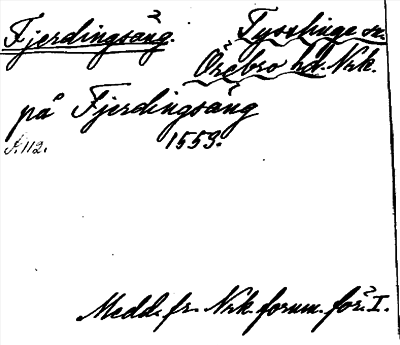 Fjerdingsäng. Tysslinge sn.
Örebro hd. Nrk.
på Fjerdingsäng
s. 112. 1559.
Medd. fr. Nrk. fornm. för. I.